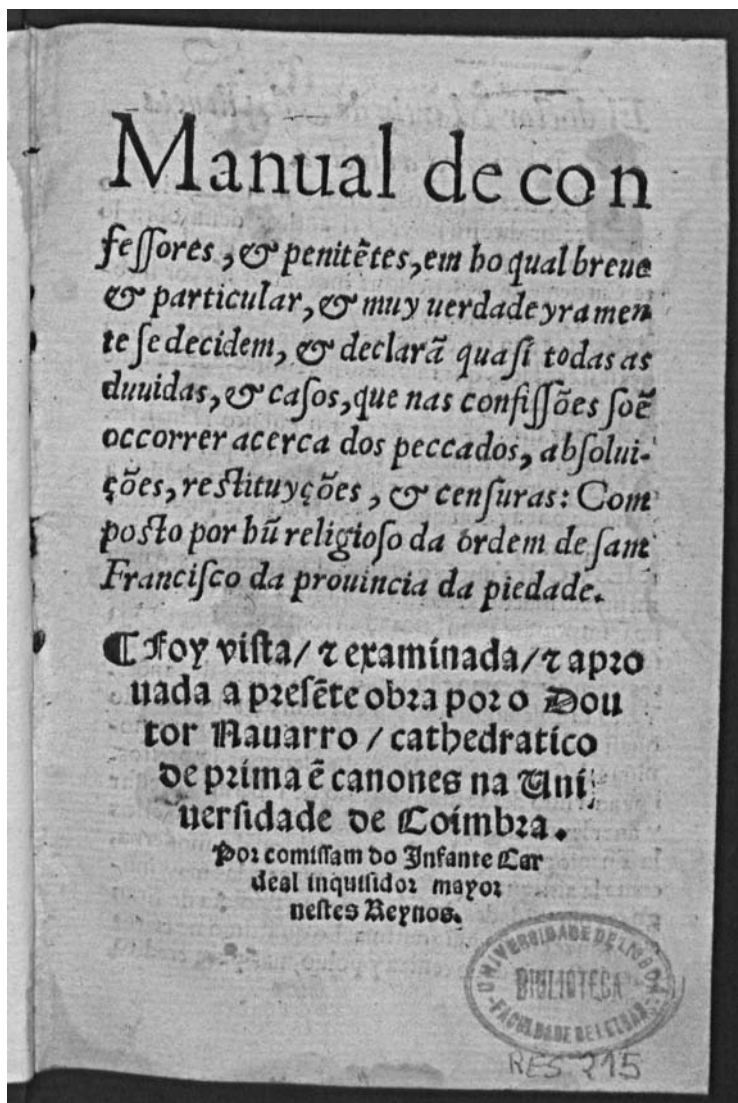 Manual de con
feſſores, & penitētes, em ho qual breue
& particular, & muy uerdadeyramen
te ſe decidem, & declarã quaſi todas as
duuidas, & caſos, que nas confiſſões ſoē
occorrer acerca dos peccados, abſolui-
ções, reſtituyções, & cenſuras: Com
poſto por hũ religioſo da ordem de ſam
Franciſco da prouincia da piedade.
¶ Foy viſta/ ⁊ examinada/ ⁊ apro
uada a preſẽte obra por o Dou
tor Nauarro / cathedratico
de prima ẽ canones na Uni
uerſidade de Coimbra.
Por comiſſam do Infante Car
deal inquiſidor mayor
neſtes Reynos.
UNIVERSIDADE DE LISBOA
BIBLIOTECA
FACULDADE DE LETRAS
RES 215